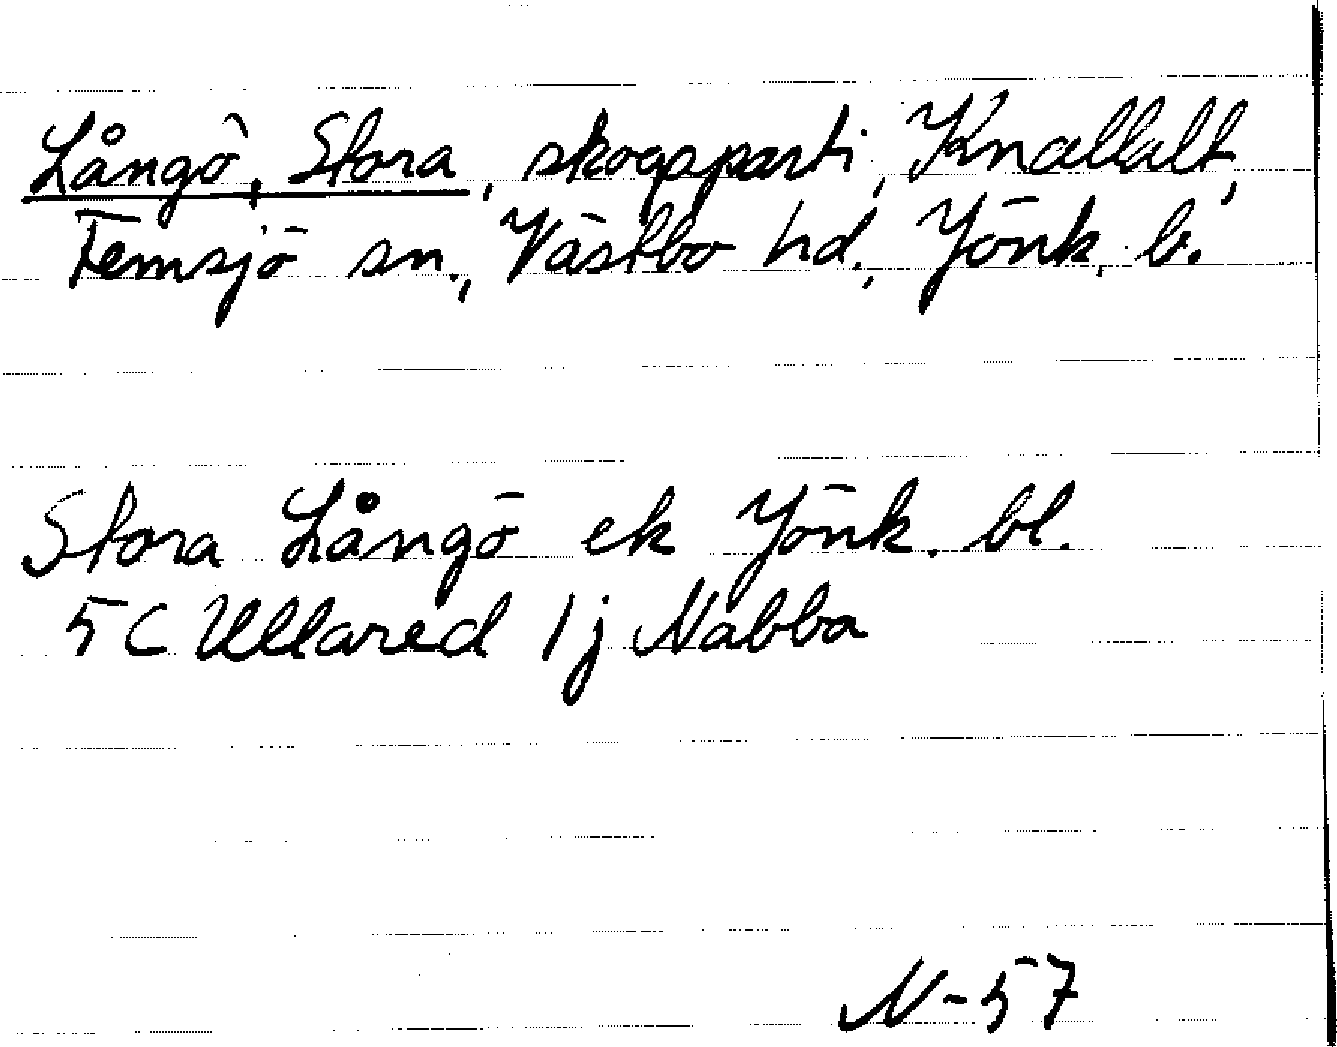 Långö, Stora, skogsparti, Knallalt,
Femsjö sn., Västbo hd., Jönk. l.
Stora Långö ek Jönk. bl.
5 C Ullared 1j Nabba
N-57